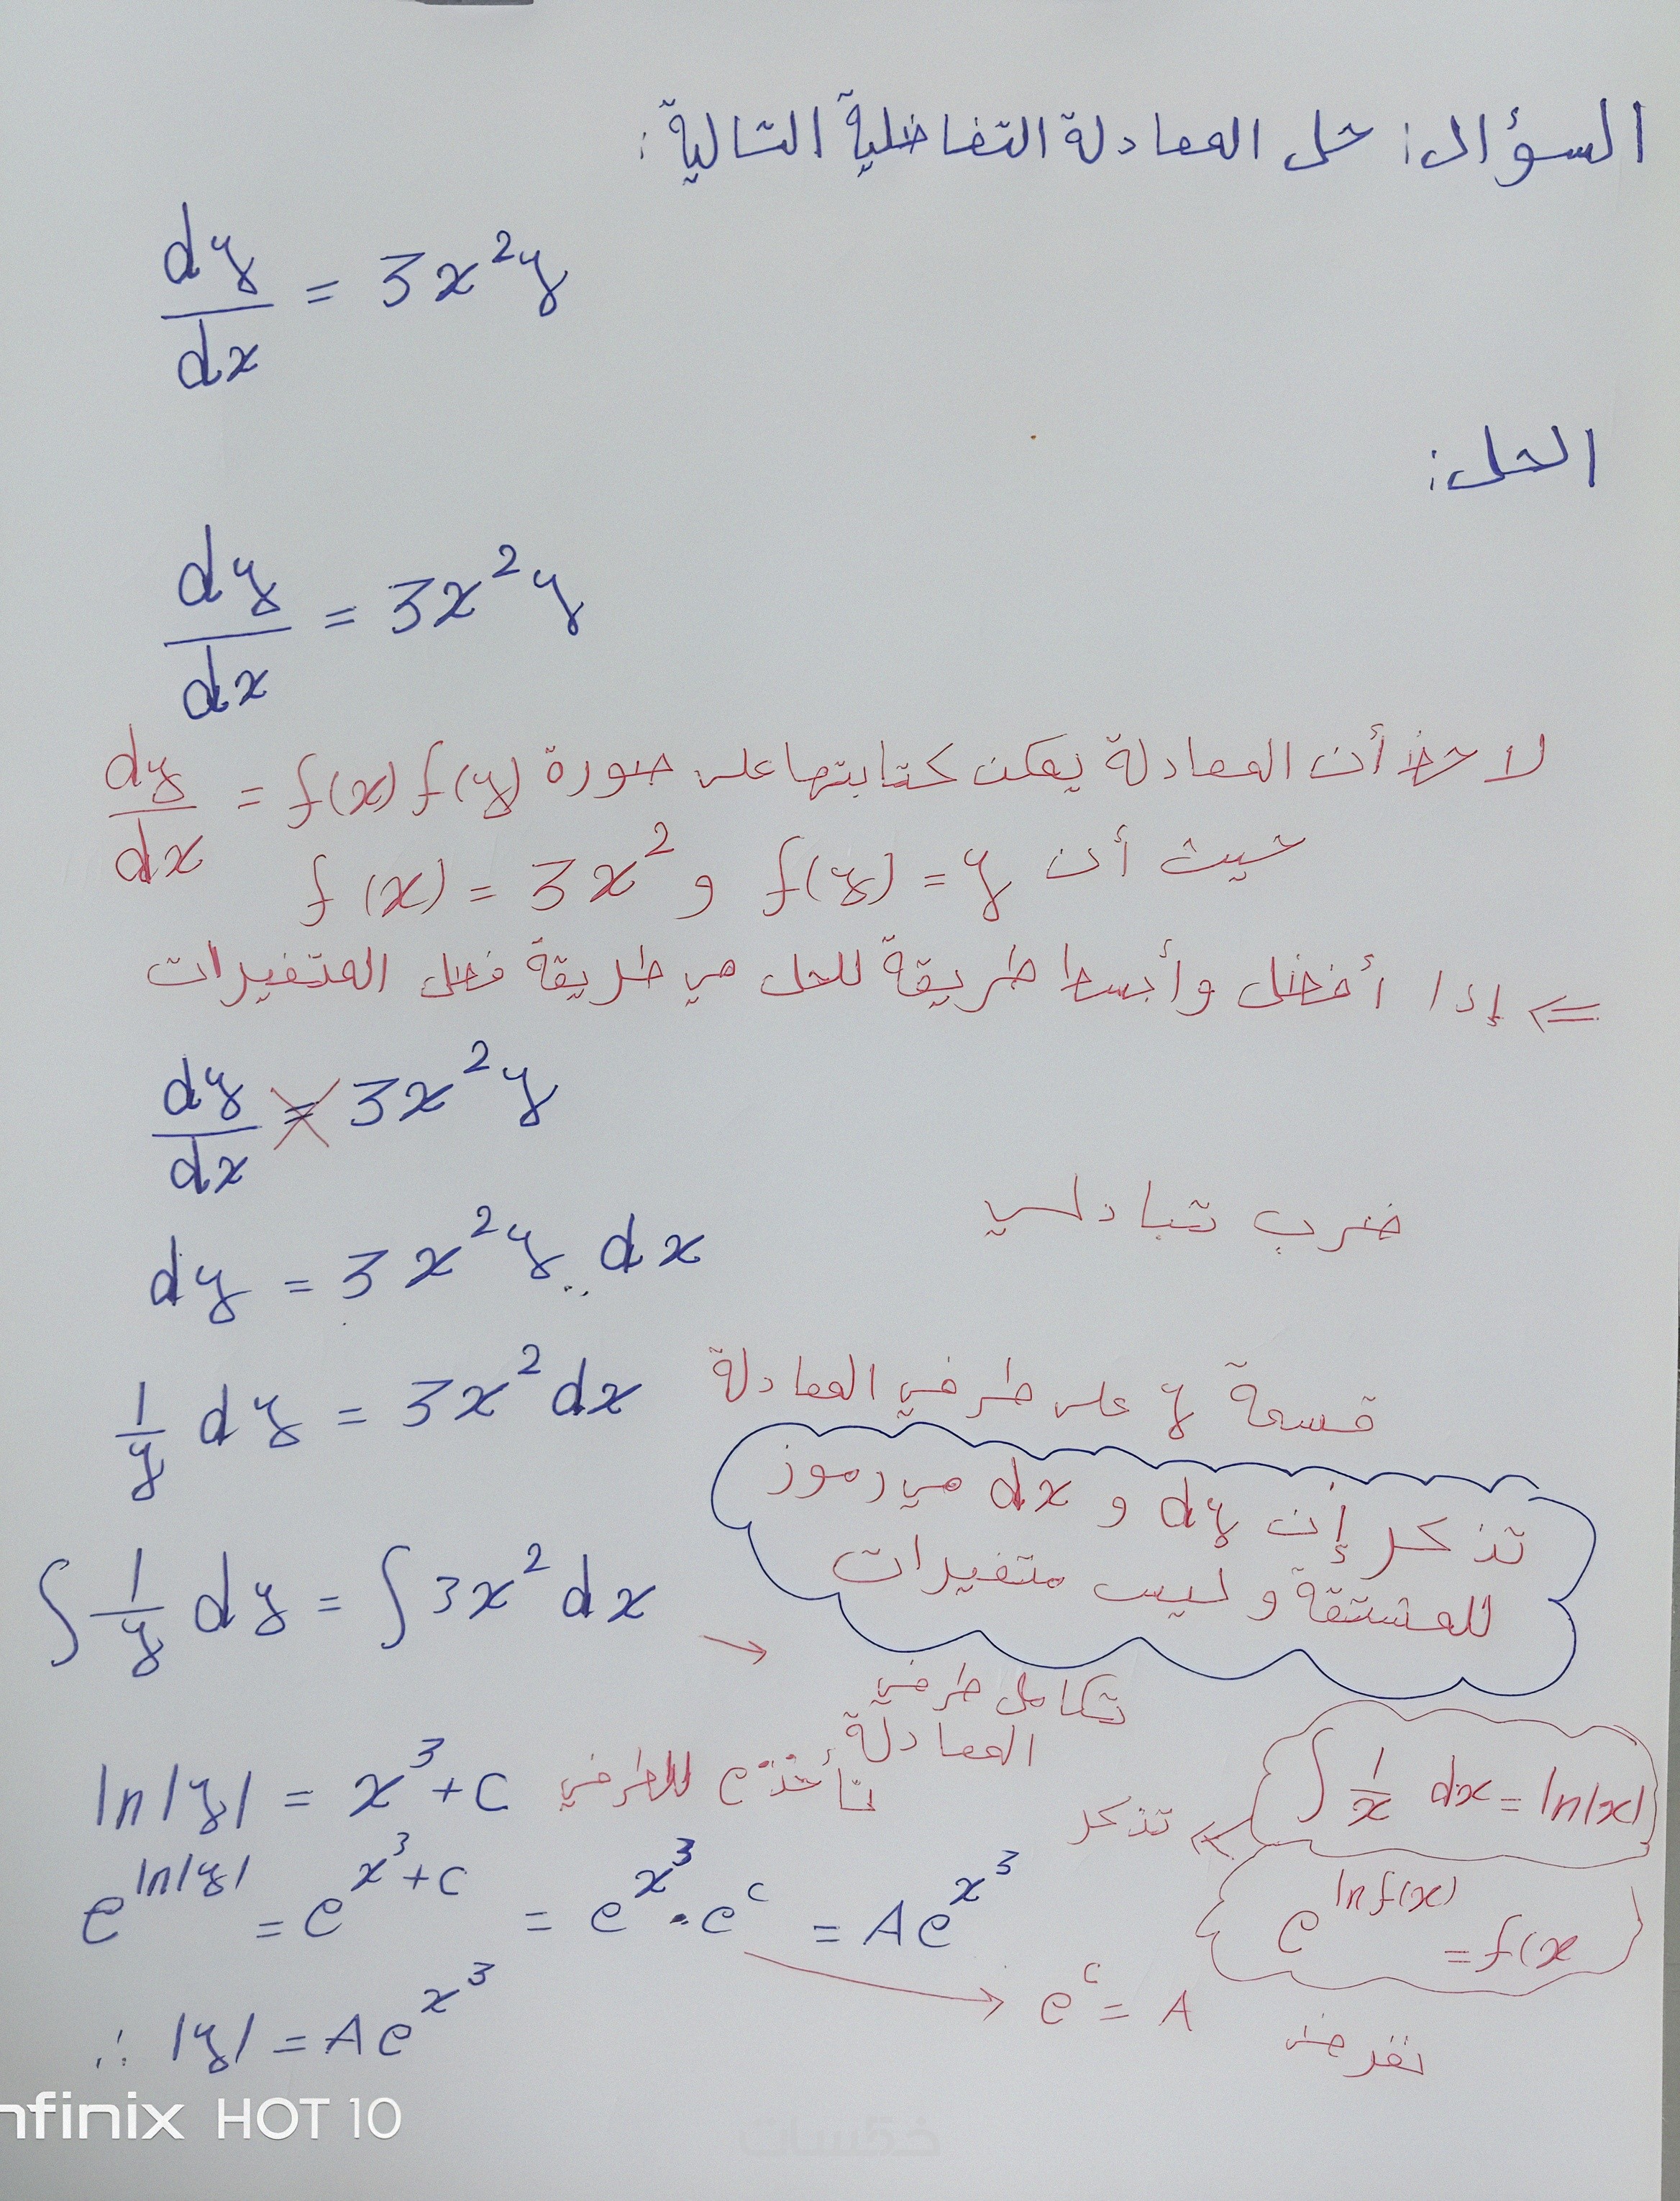 السؤال: حل المعادلة التفاضلية التالية:
dy/dx = 3x²y
الحل:
dy/dx = 3x²y
لاحظ أن المعادلة يمكن كتابتها على صورة dy/dx = f(x) f(y)
حيث أن f(y) = y و f(x) = 3x²
⇐ إذا أفضل وأبسط طريقة للحل هي طريقة فصل المتغيرات
dy/dx = 3x²y
ضرب تبادلي
dy = 3x²y . dx
1/y dy = 3x² dx قسمة y على طرفي المعادلة
تذكر إن dy و dx هي رموز
للمشتقة و ليس متغيرات
∫ 1/y dy = ∫ 3x² dx →
تكامل طرفي
المعادلة
ln|y| = x³ + c نأخذ e للطرفي
تذكر
∫ 1/x dx = ln|x|
e^(ln f(x)) = f(x
e^(ln|y|) = e^(x³+c) = e^(x³) . e^c = A e^(x³)
→ e^c = A نفرض
∴ |y| = A e^(x³)
nfinix HOT 10
خمسات